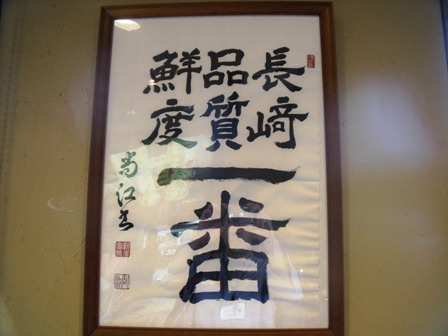 長﨑
品質
鮮度
一番
尚江書